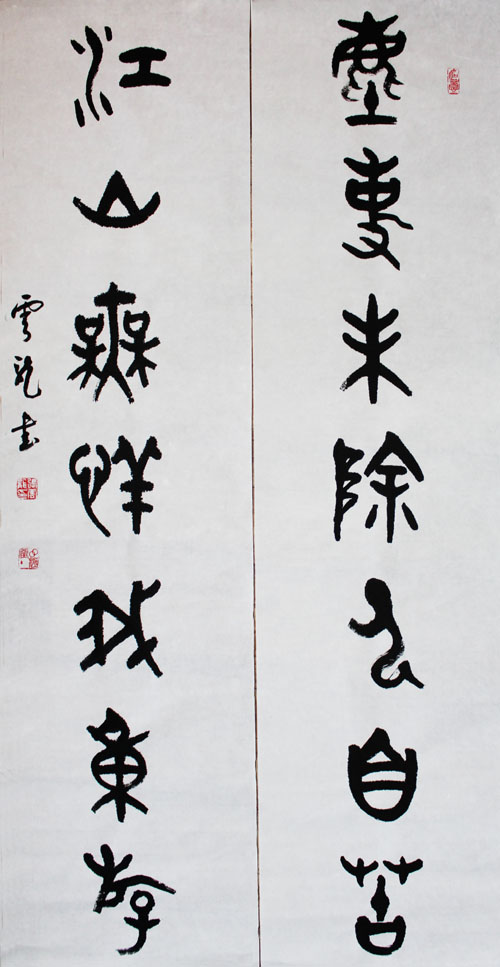 塵事未除人自苦
江山無恙我重斿
雲龍書